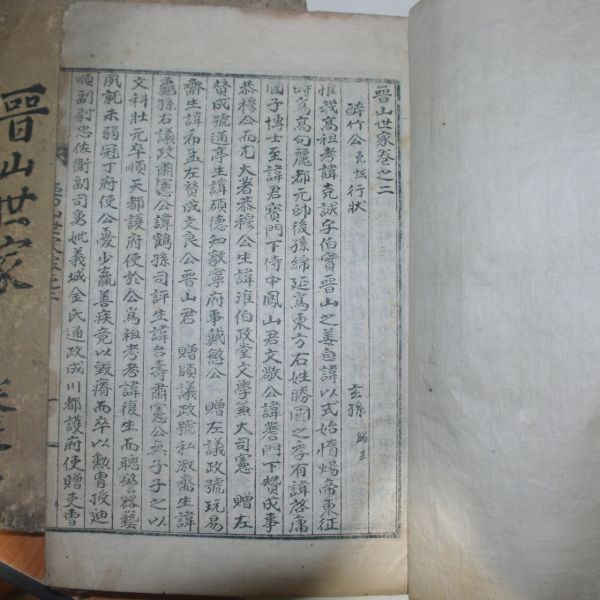 晉山世家卷之二
醉竹公克誠行狀
玄孫
惟我高祖考諱克誠字伯實晉山之姜自諱以式始隋煬帝東征
時爲高句麗都元帥後孫綿延爲東方右姓勝國之季有諱啓庸
國子博士至諱君寶門下侍中鳳山君文敬公諱蓍門下贊成事
恭穆公而尤大著恭穆公生諱淮伯政堂文學兼大司憲 贈左
贊成號通亭生諱碩德知敦寧府事戴愍公 贈左議政號玩易
齋生諱希孟左贊成文良公晉山君 贈領議政號私淑齋生諱
龜孫右議政肅憲公諱鶴孫司評生諱台壽肅憲公無子子之以
文科壯元卒順天都護府使於公爲祖考考諱復生而聰警器藝
夙就未弱冠丁府使公憂少羸善疾竟以毁瘠而卒以勳胄授迪
順副尉忠佐衛副司勇妣義城金氏通政成川都護府使贈吏曹
晉山世家